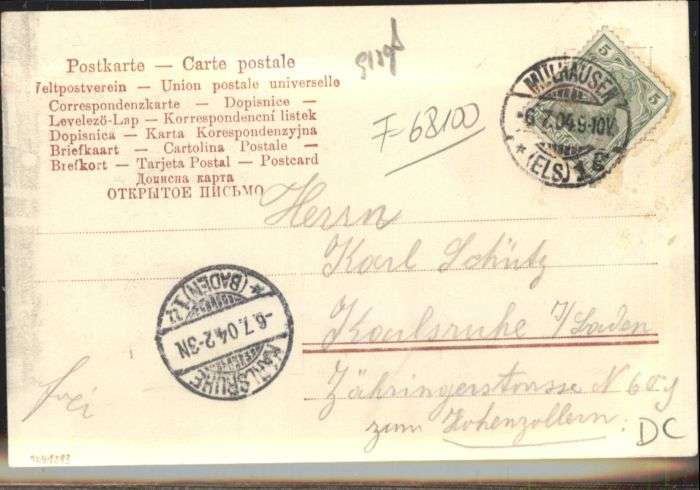 Postkarte — Carte postale
Weltpostverein — Union postale universelle
Correspondenzkarte — Dopisnice —
Levelező-Lap — Korrespondencní listek
Dopisnica — Karta Korespondenzyjna
Briefkaart — Cartolina Postale —
Brefkort — Tarjeta Postal — Postcard
Дописна карта
ОТКРЫТОЕ ПИСЬМО
F-68100
5
5
MÜLHAUSEN
6.7.04.9-10V.
* (ELS) 1 G *
Herrn
Karl Schütz
Karlsruhe i/Baden
Zähringerstrasse N
zum Hohenzollern.
KARLSRUHE
-6.7.04.2-3N
* (BADEN) 1
DC